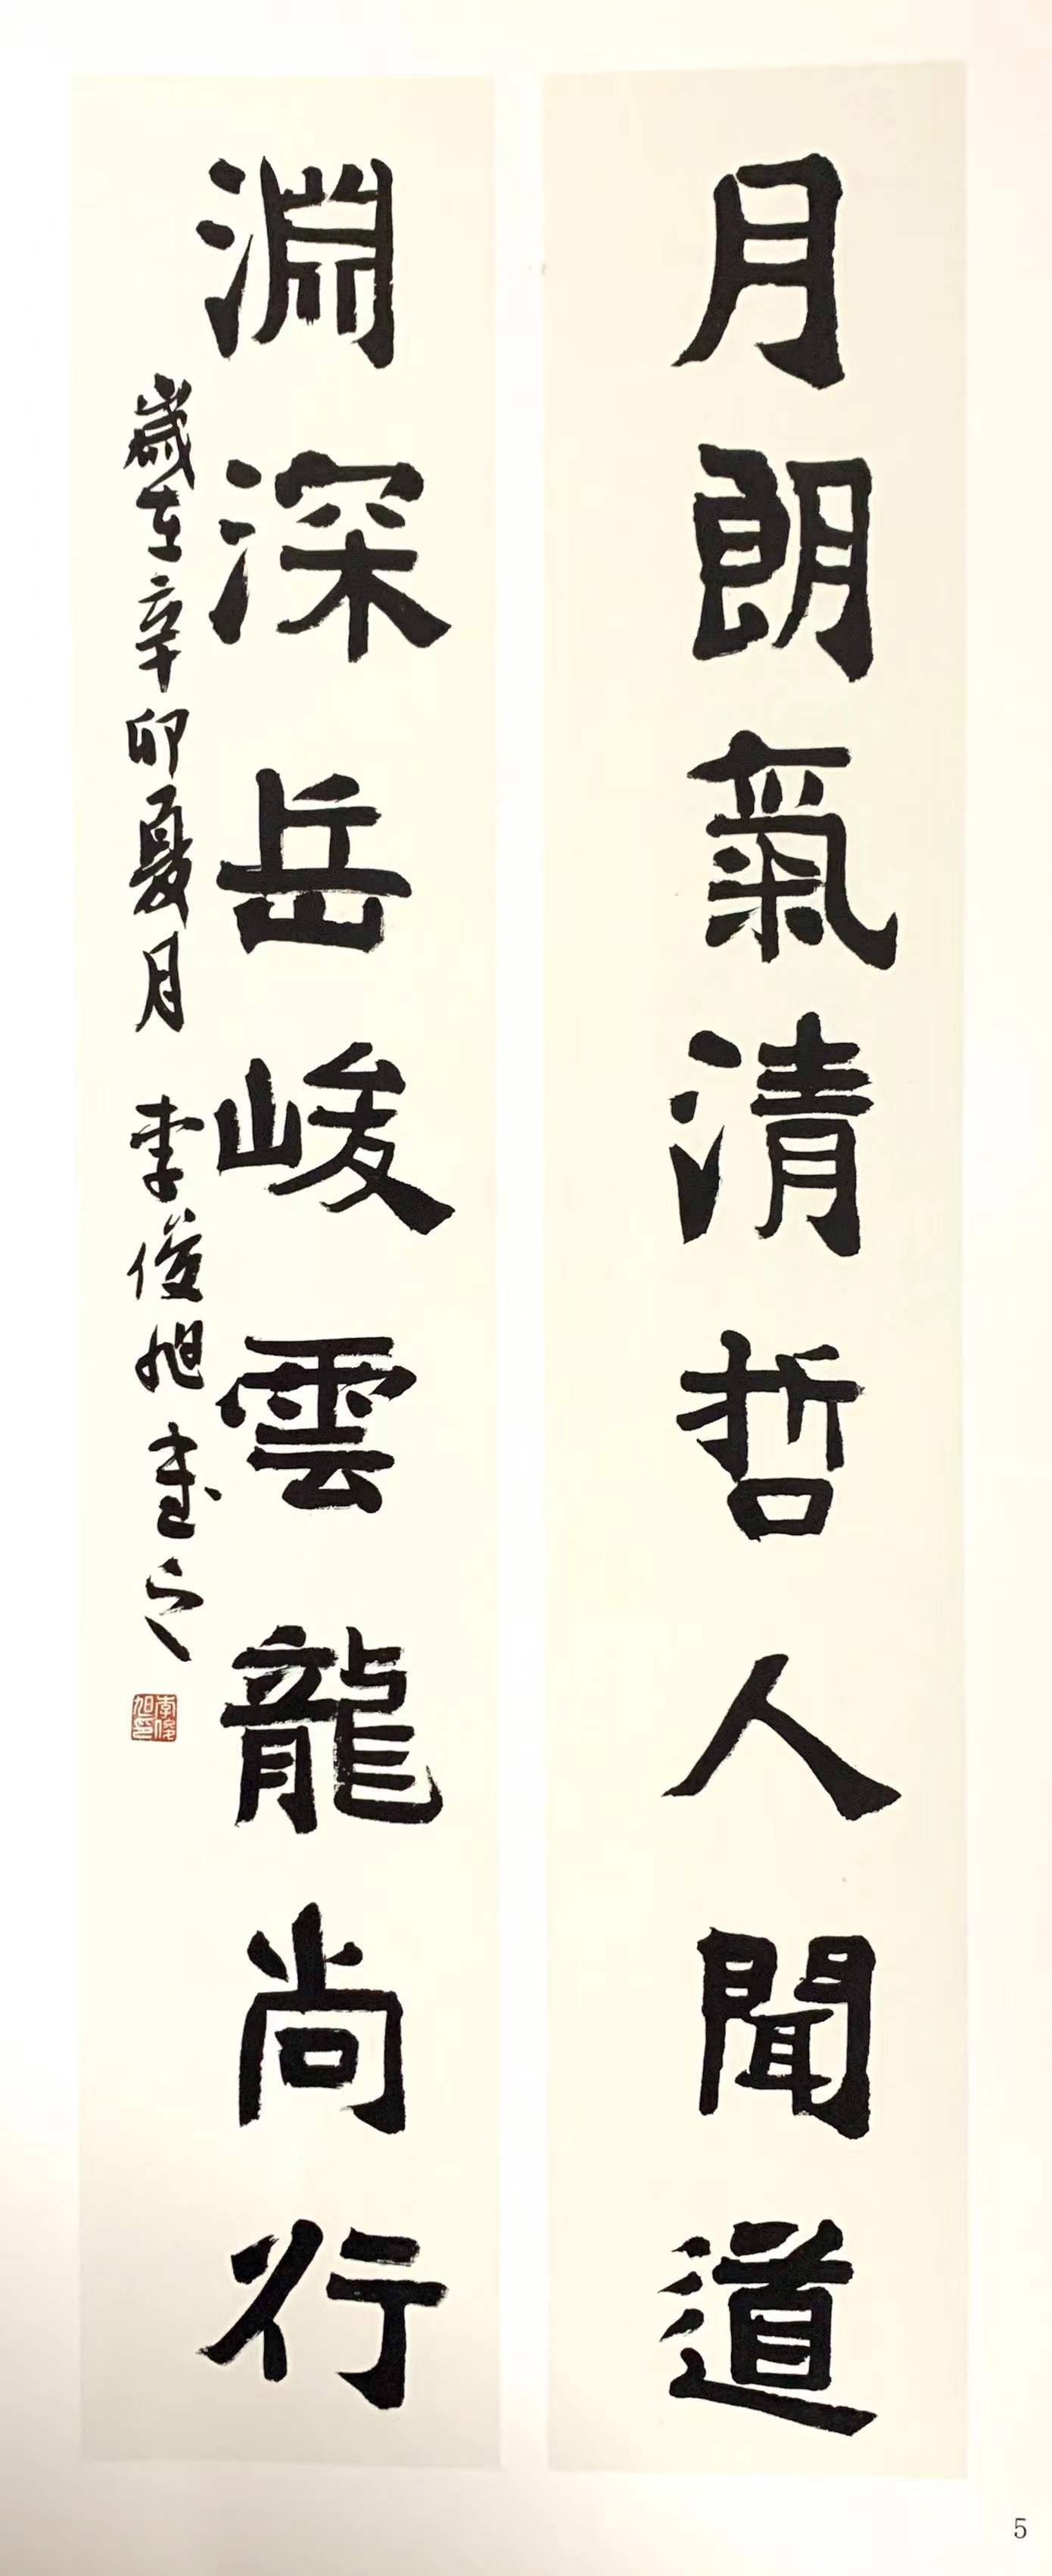 月朗氣清哲人聞道
淵深岳峻雲龍尚行
歲在辛卯夏月 李俊旭書之
李俊旭印
5